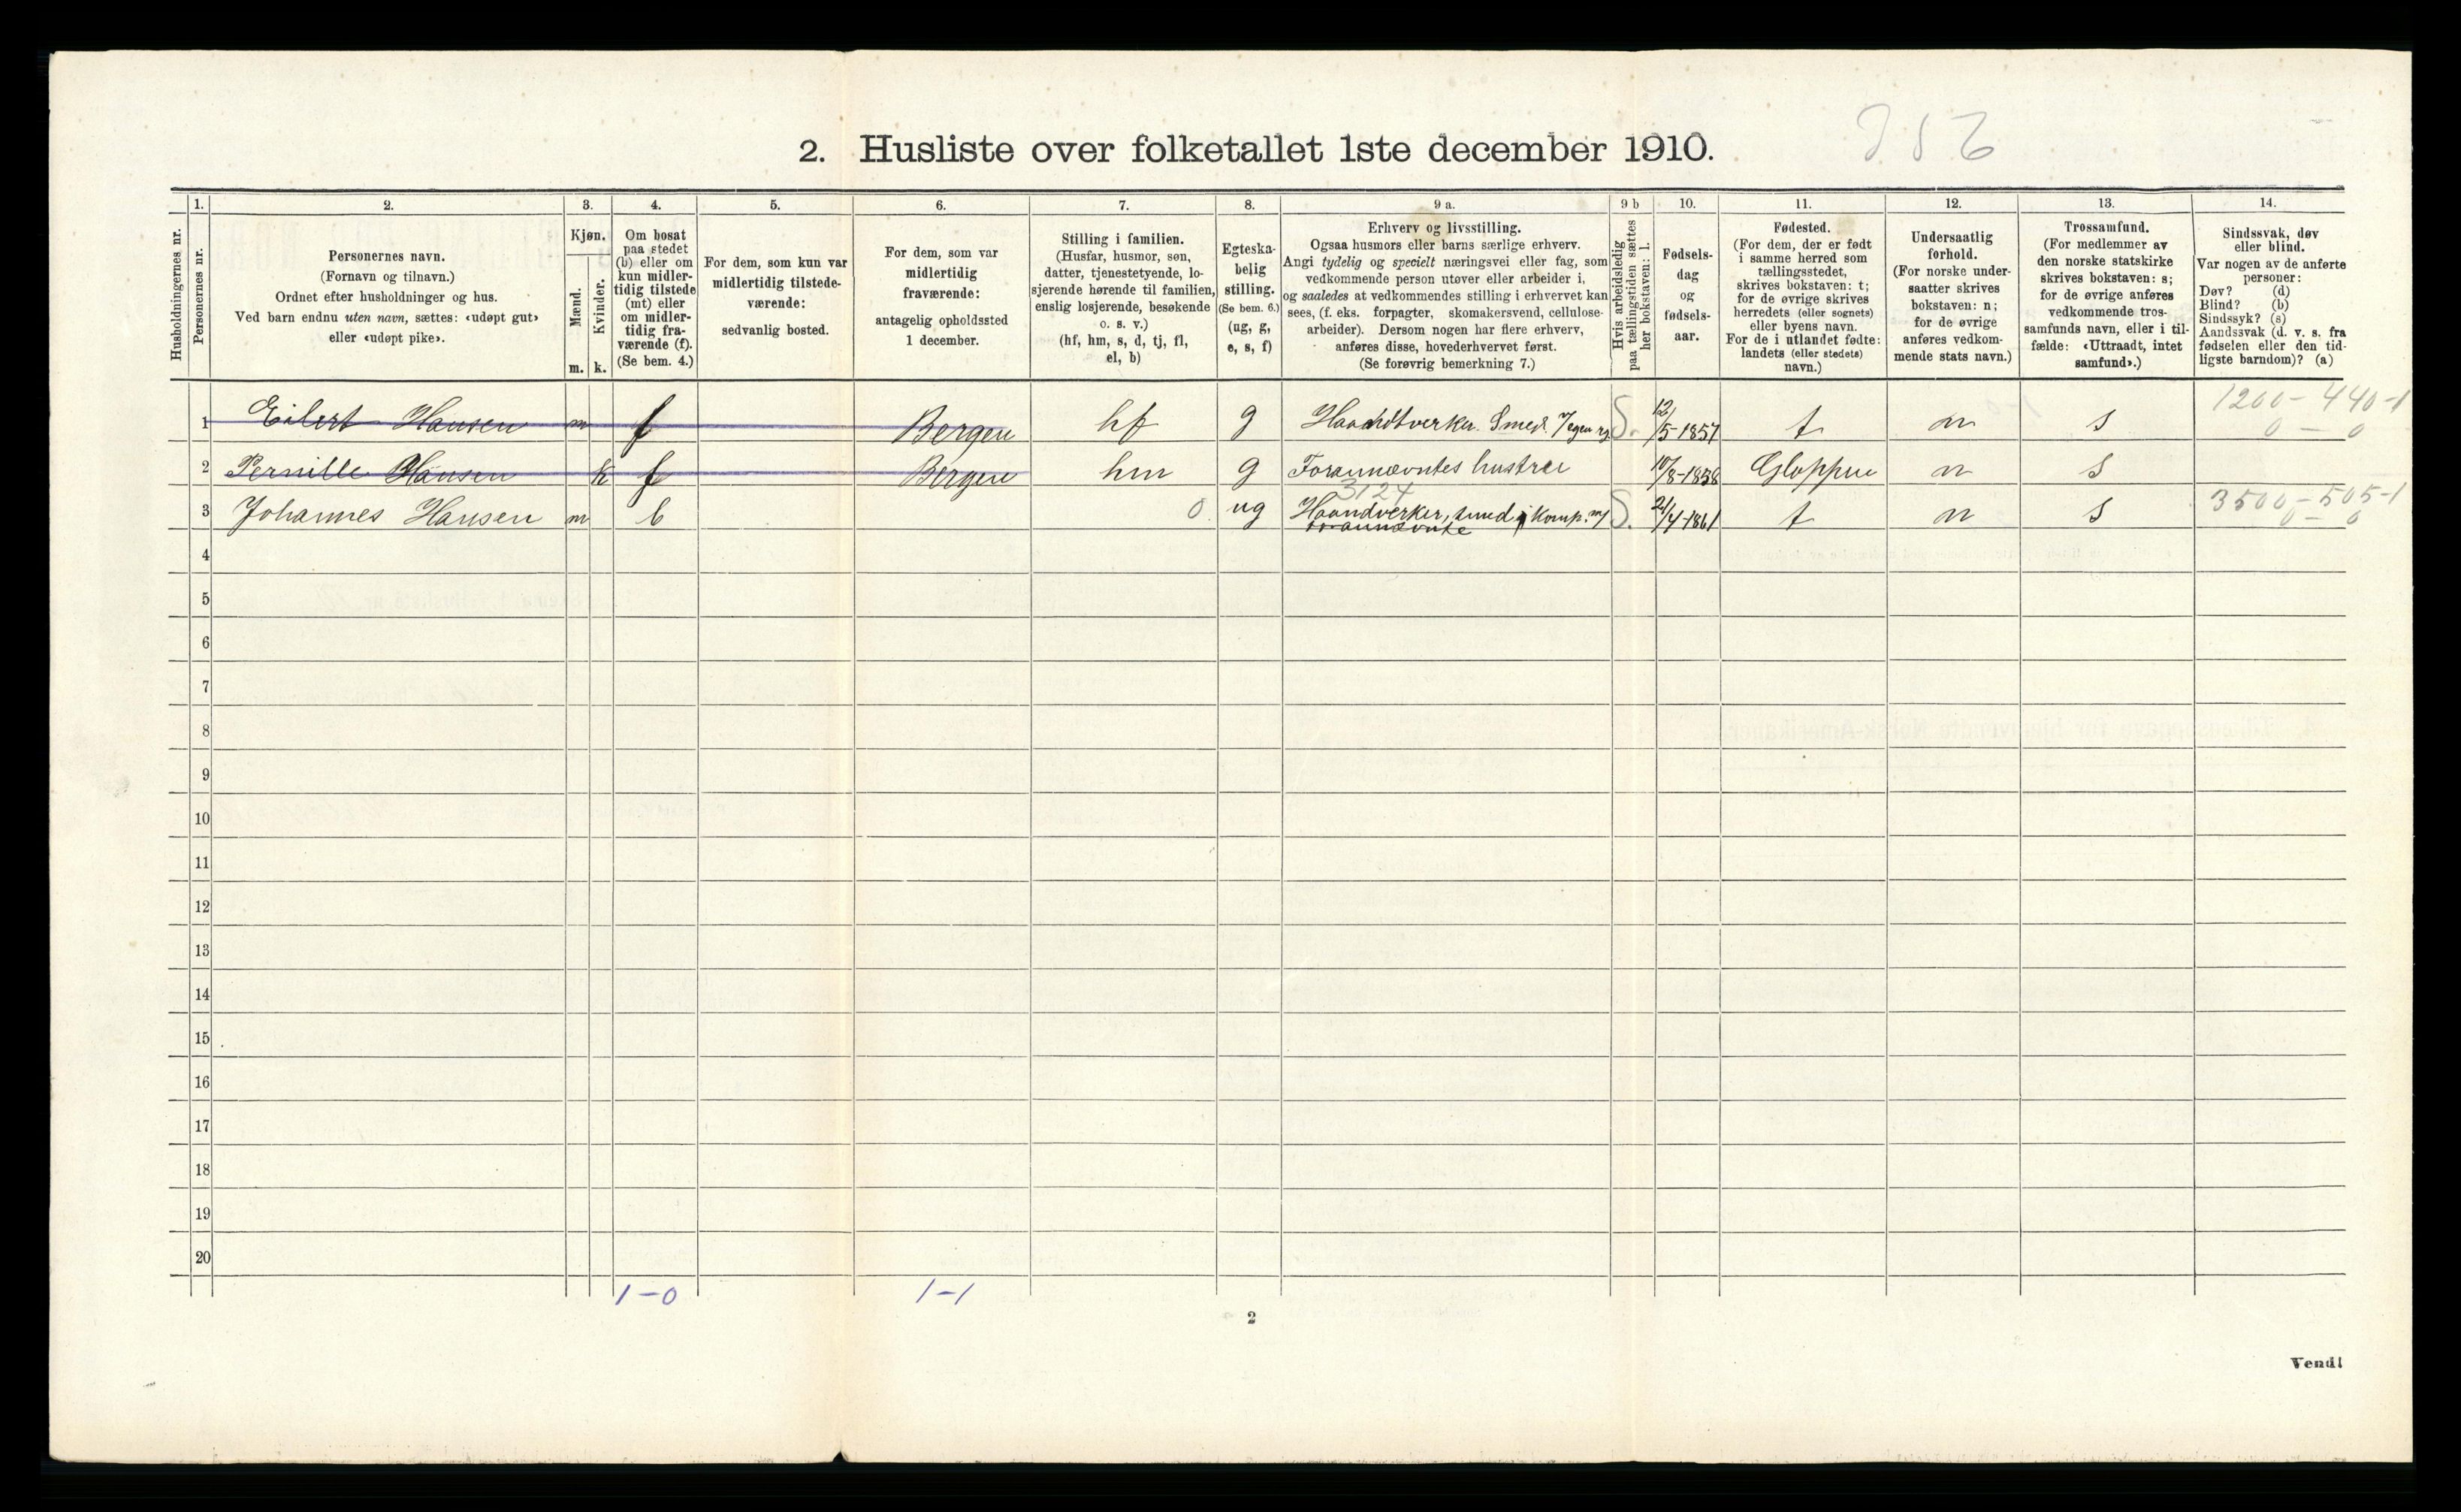 2. Husliste over folketallet 1ste december 1910.
Husholdningernes nr.
1.
Personernes nr.
2.
Personernes navn.
(Fornavn og tilnavn.)
Ordnet efter husholdninger og hus.
Ved barn endnu uten navn, sættes: «udøpt gut»
eller «udøpt pike».
3.
Kjøn.
Mænd.
Kvinder.
m.
k.
4.
Om bosat
paa stedet
(b) eller om
kun midler-
tidig tilstede
(mt) eller
om midler-
tidig fra-
værende (f).
(Se bem. 4.)
5.
For dem, som kun var
midlertidig tilstede-
værende:
sedvanlig bosted.
6.
For dem, som var
midlertidig
fraværende:
antagelig opholdssted
1 december.
7.
Stilling i familien.
(Husfar, husmor, søn,
datter, tjenestetyende, lo-
sjerende hørende til familien,
enslig losjerende, besøkende
o. s. v.)
(hf, hm, s, d, tj, fl,
el, b)
8.
Egteska-
belig
stilling.
(Se bem. 6.)
(ug, g,
e, s, f)
9 a.
Erhverv og livsstilling.
Ogsaa husmors eller barns særlige erhverv.
Angi tydelig og specielt næringsvei eller fag, som
vedkommende person utøver eller arbeider i,
og saaledes at vedkommendes stilling i erhvervet kan
sees, (f. eks. forpagter, skomakersvend, cellulose-
arbeider). Dersom nogen har flere erhverv,
anføres disse, hovederhvervet først.
(Se forøvrig bemerkning 7.)
9 b
Hvis arbeidsledig
paa tællingstiden sættes
her bokstaven: l.
10.
Fødsels-
dag
og
fødsels-
aar.
11.
Fødested.
(For dem, der er født
i samme herred som
tællingsstedet,
skrives bokstaven: t;
for de øvrige skrives
herredets (eller sognets)
eller byens navn.
For de i utlandet fødte:
landets (eller stedets)
navn.)
12.
Undersaatlig
forhold.
(For norske under-
saatter skrives
bokstaven: n;
for de øvrige
anføres vedkom-
mende stats navn.)
13.
Trossamfund.
(For medlemmer av
den norske statskirke
skrives bokstaven: s;
for de øvrige anføres
vedkommende tros-
samfunds navn, eller i til-
fælde: «Uttraadt, intet
samfund».)
14.
Sindssvak, døv
eller blind.
Var nogen av de anførte
personer:
Døv? (d)
Blind? (b)
Sindssyk? (s)
Aandssvak (d. v. s. fra
fødselen eller den tid-
ligste barndom)? (a)
1200 - 440-1
1 Eilert Hansen m f Bergen hf g Haandtverker. Smed. S. 12/5-1857 t n s 0 - 0
2 Pernille Hansen k f Bergen hm g Forannævntes hustru 10/8-1858 Gloppen n s
3124 3500 - 505-1
3 Johannes Hansen m b 0 ug Haandverker, smed i Komp. m/ S. 21/4-1861 t n s 0 - 0
forannævnte
4
5
6
7
8
9
10
11
12
13
14
15
16
17
18
19
20
1-0 1-1
2
Vend!